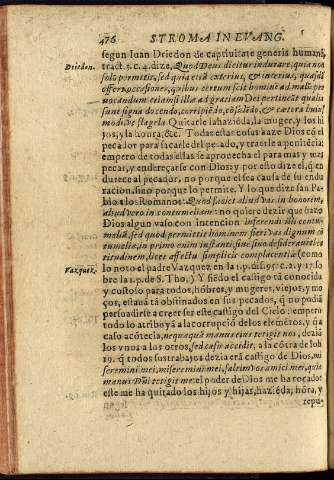 476 STROMA IN EVANG.
segun Iuan Driedon de captiuitate generis humani,
Driedon.
tract. 5. c. 4. dize, Quod Deus dicitur indurare, quia non
solo permittit, sed quia etiā exterius, & interius, quasdā
offert occasiones, quibus certum scit hominē ad malū per
uocandum etiamsi illa ad gratiam Dei pertineāt qualia
sunt signa docendo, corripiēdo, cōsolādo, & cætera huius
modi de flagela Quitarle la haziēda, la muger, y los hi
jos, y la honra, &c. Todas estas cosas haze Dios cō el
pecador para sacarle del pecado, y traerle a penitēcia;
empero de todas ellas se aprouecha el para mas y mas
pecar, y endereçarse con Dios: y por esto dize el, q̄ en
durece al pecador, no porque el sea causa de su endu
racion, sino porque lo permite. Y lo que dize san Pa
blo a los Romanos: Quod faciet aliud vas in honorem,
aliud vero in contumeliam: no quiere dezir que haze
Dios algun vaso con intencion inferendi illi contu-
meliā, sed quod permittit hominem fieri vas dignum cō
tumelia, in primo enim instanti, siue sine desiderauerit ei
titudinem, licet affectu simplicis complacentiæ (como
Vazquez.
lo noto el padre Vazquez en la 1. p. dis. 95. c. 2. y 17. so
bre la 1. p. de S. Tho.) Y siēdo el castigo tā conocida
y costoso para todos, hōbres, y mugeres, viejos, y mo
ços, estauā tā obstinados en sus pecados, q̄ no podiā
persuadirse a creer ser este castigo del Cielo: empero
todo lo atribuyā a la corrupciō de los elemētos, y q̄ a
caso acōtecia, nequaquā manus eius tetigit nos, dezia
los vnos a los otros, sed casu accidit, a la cōtra de Iob
19. q̄ todos sus trabajos dezia erā castigo de Dios, mi
seremini mei, miseremini mei, saltim vos amici mei, quia
manus Dn̄i tetigit me: el poder de Dios me ha tocado:
este me ha quitado los hijos y hijas, haziēda, hōra, y
repu-